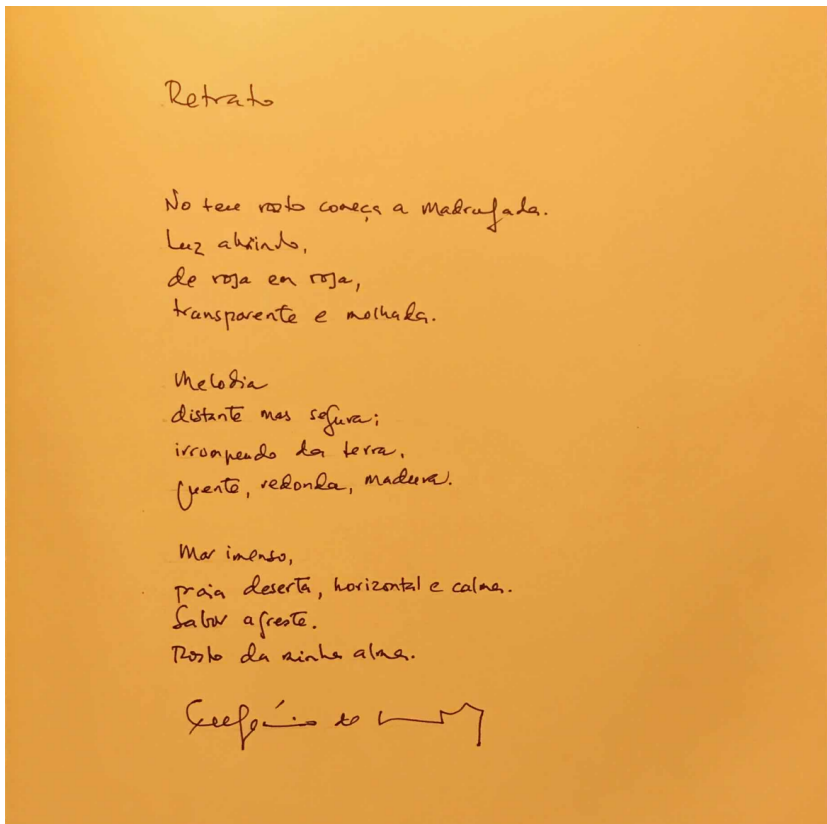 Retrato
No teu rosto começa a madrugada.
Luz abrindo,
de rosa em rosa,
transparente e molhada.
Melodia
distante mas segura;
irrompendo da terra,
quente, redonda, madura.
Mar imenso,
praia deserta, horizontal e calma.
Sabor agreste.
Rosto da minha alma.
Eugénio de